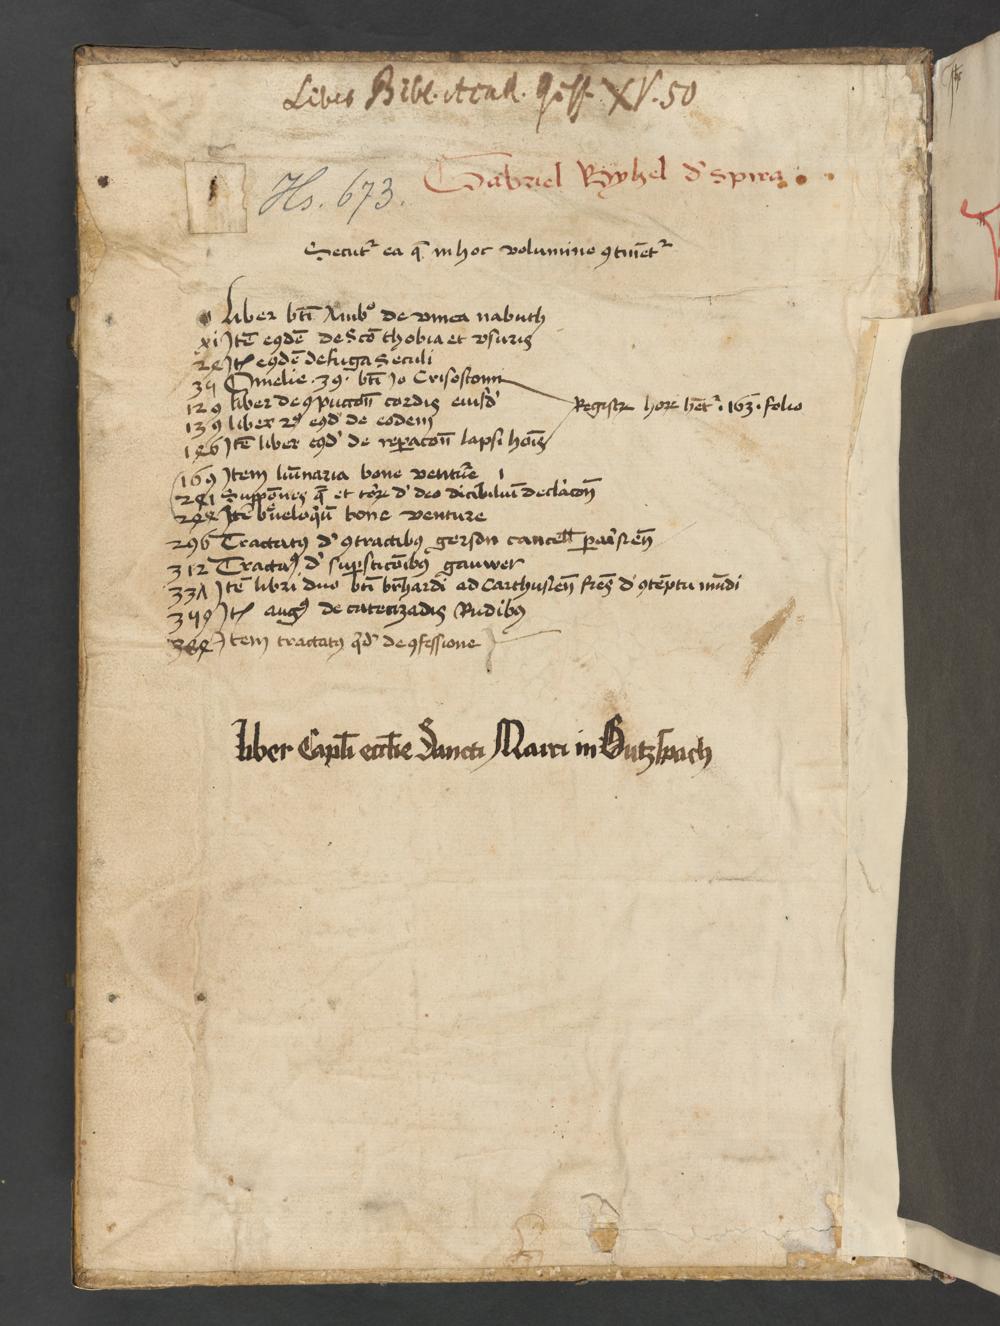 Liber Bibl. Acad. Giss. XV. 50
Hs. 673.
Gabriel Byhel d' Spira
Secut͛ ea q̄ in hoc volumine ꝯtinēt͛
1 Liber bt̄i Ambͦ de vinea nabuth
xi Itē eiusdē de Sc̄o thobia et vsuris
Itē eiusdē de fuga seculi
34 Omelie .39. bt̄i Jo Crisostomi
129 liber de ꝯpūctōn cordis eiusd'
139 liber 2ꝰ eiusd' de eodem
146 Itē liber eiusd' de repacōn lapsi hoīs
Registr͛ hor͛ hēt͛ . 163 . folio
169 Item lūinaria bone ventu͛e
et d' deo dicibiliū declacōn
Itē breueloq̄ū bone venture
296 Tractatꝰ d' ꝯtractibꝰ gerson cancell̄ parisieñ
312 Tractatꝰ d' supsticōibꝰ gauwer
331 Itē libri duo bt̄i br̄hardi ad Carthusieñ fr̄es d' ꝯtēptu mūdi
349 Itē augꝰ de catetizādis Rudibꝰ
Item tractatꝰ q̄d' de ꝯfessione
liber Capli ecclie Sancti Marci in Butzspach